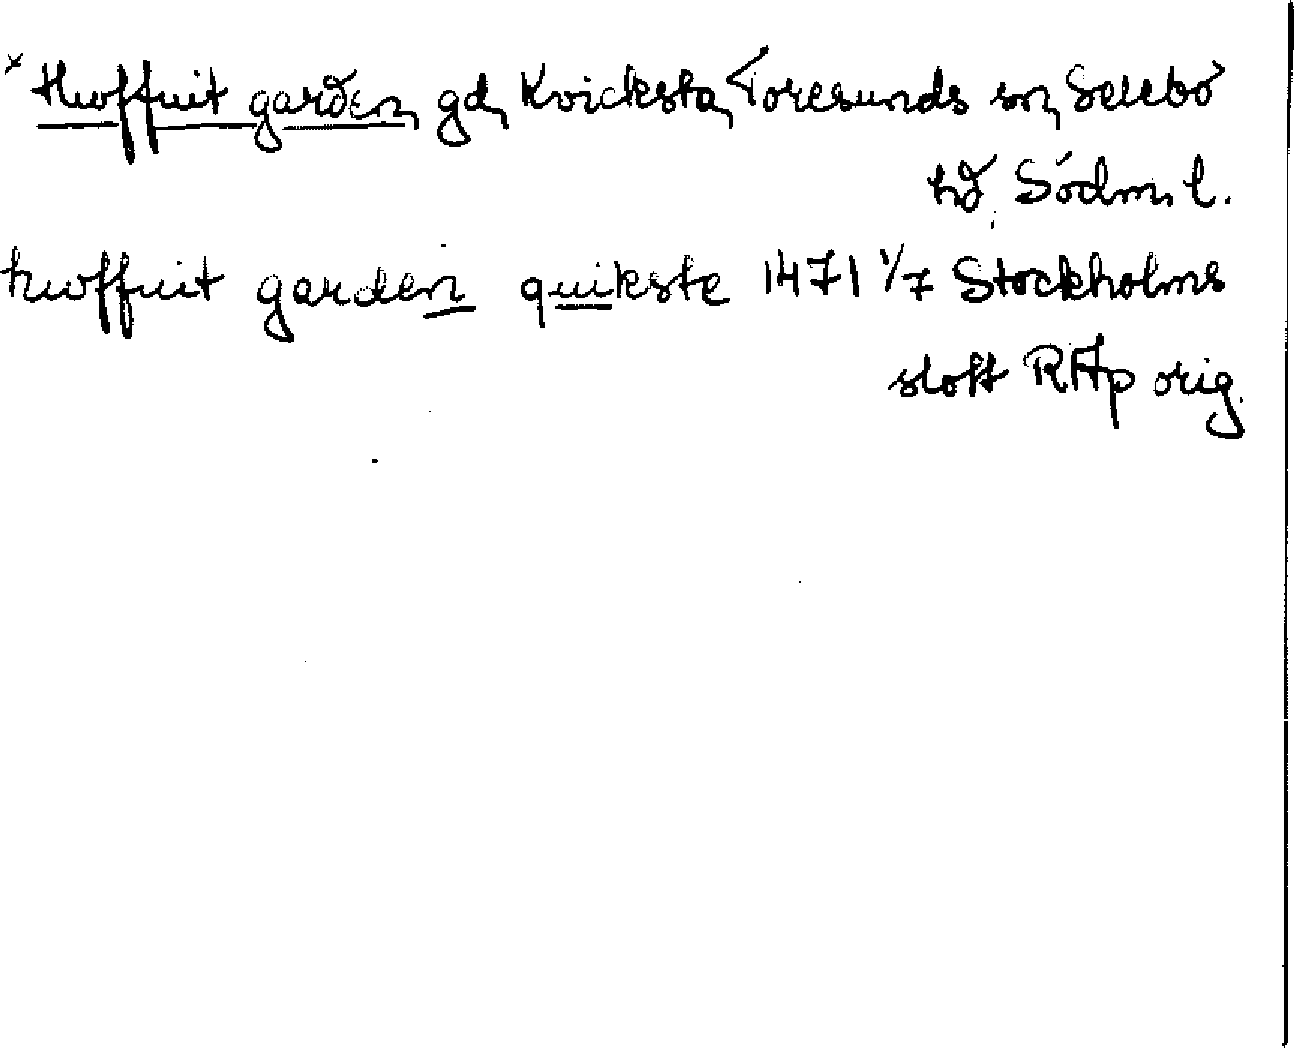 × Hwffuit garden, gd, Kvicksta, Toresunds sn, Selebo
hd, Södm. l.
hwffuit garden quikste 1471 1/7 Stockholms
slott RAp orig.